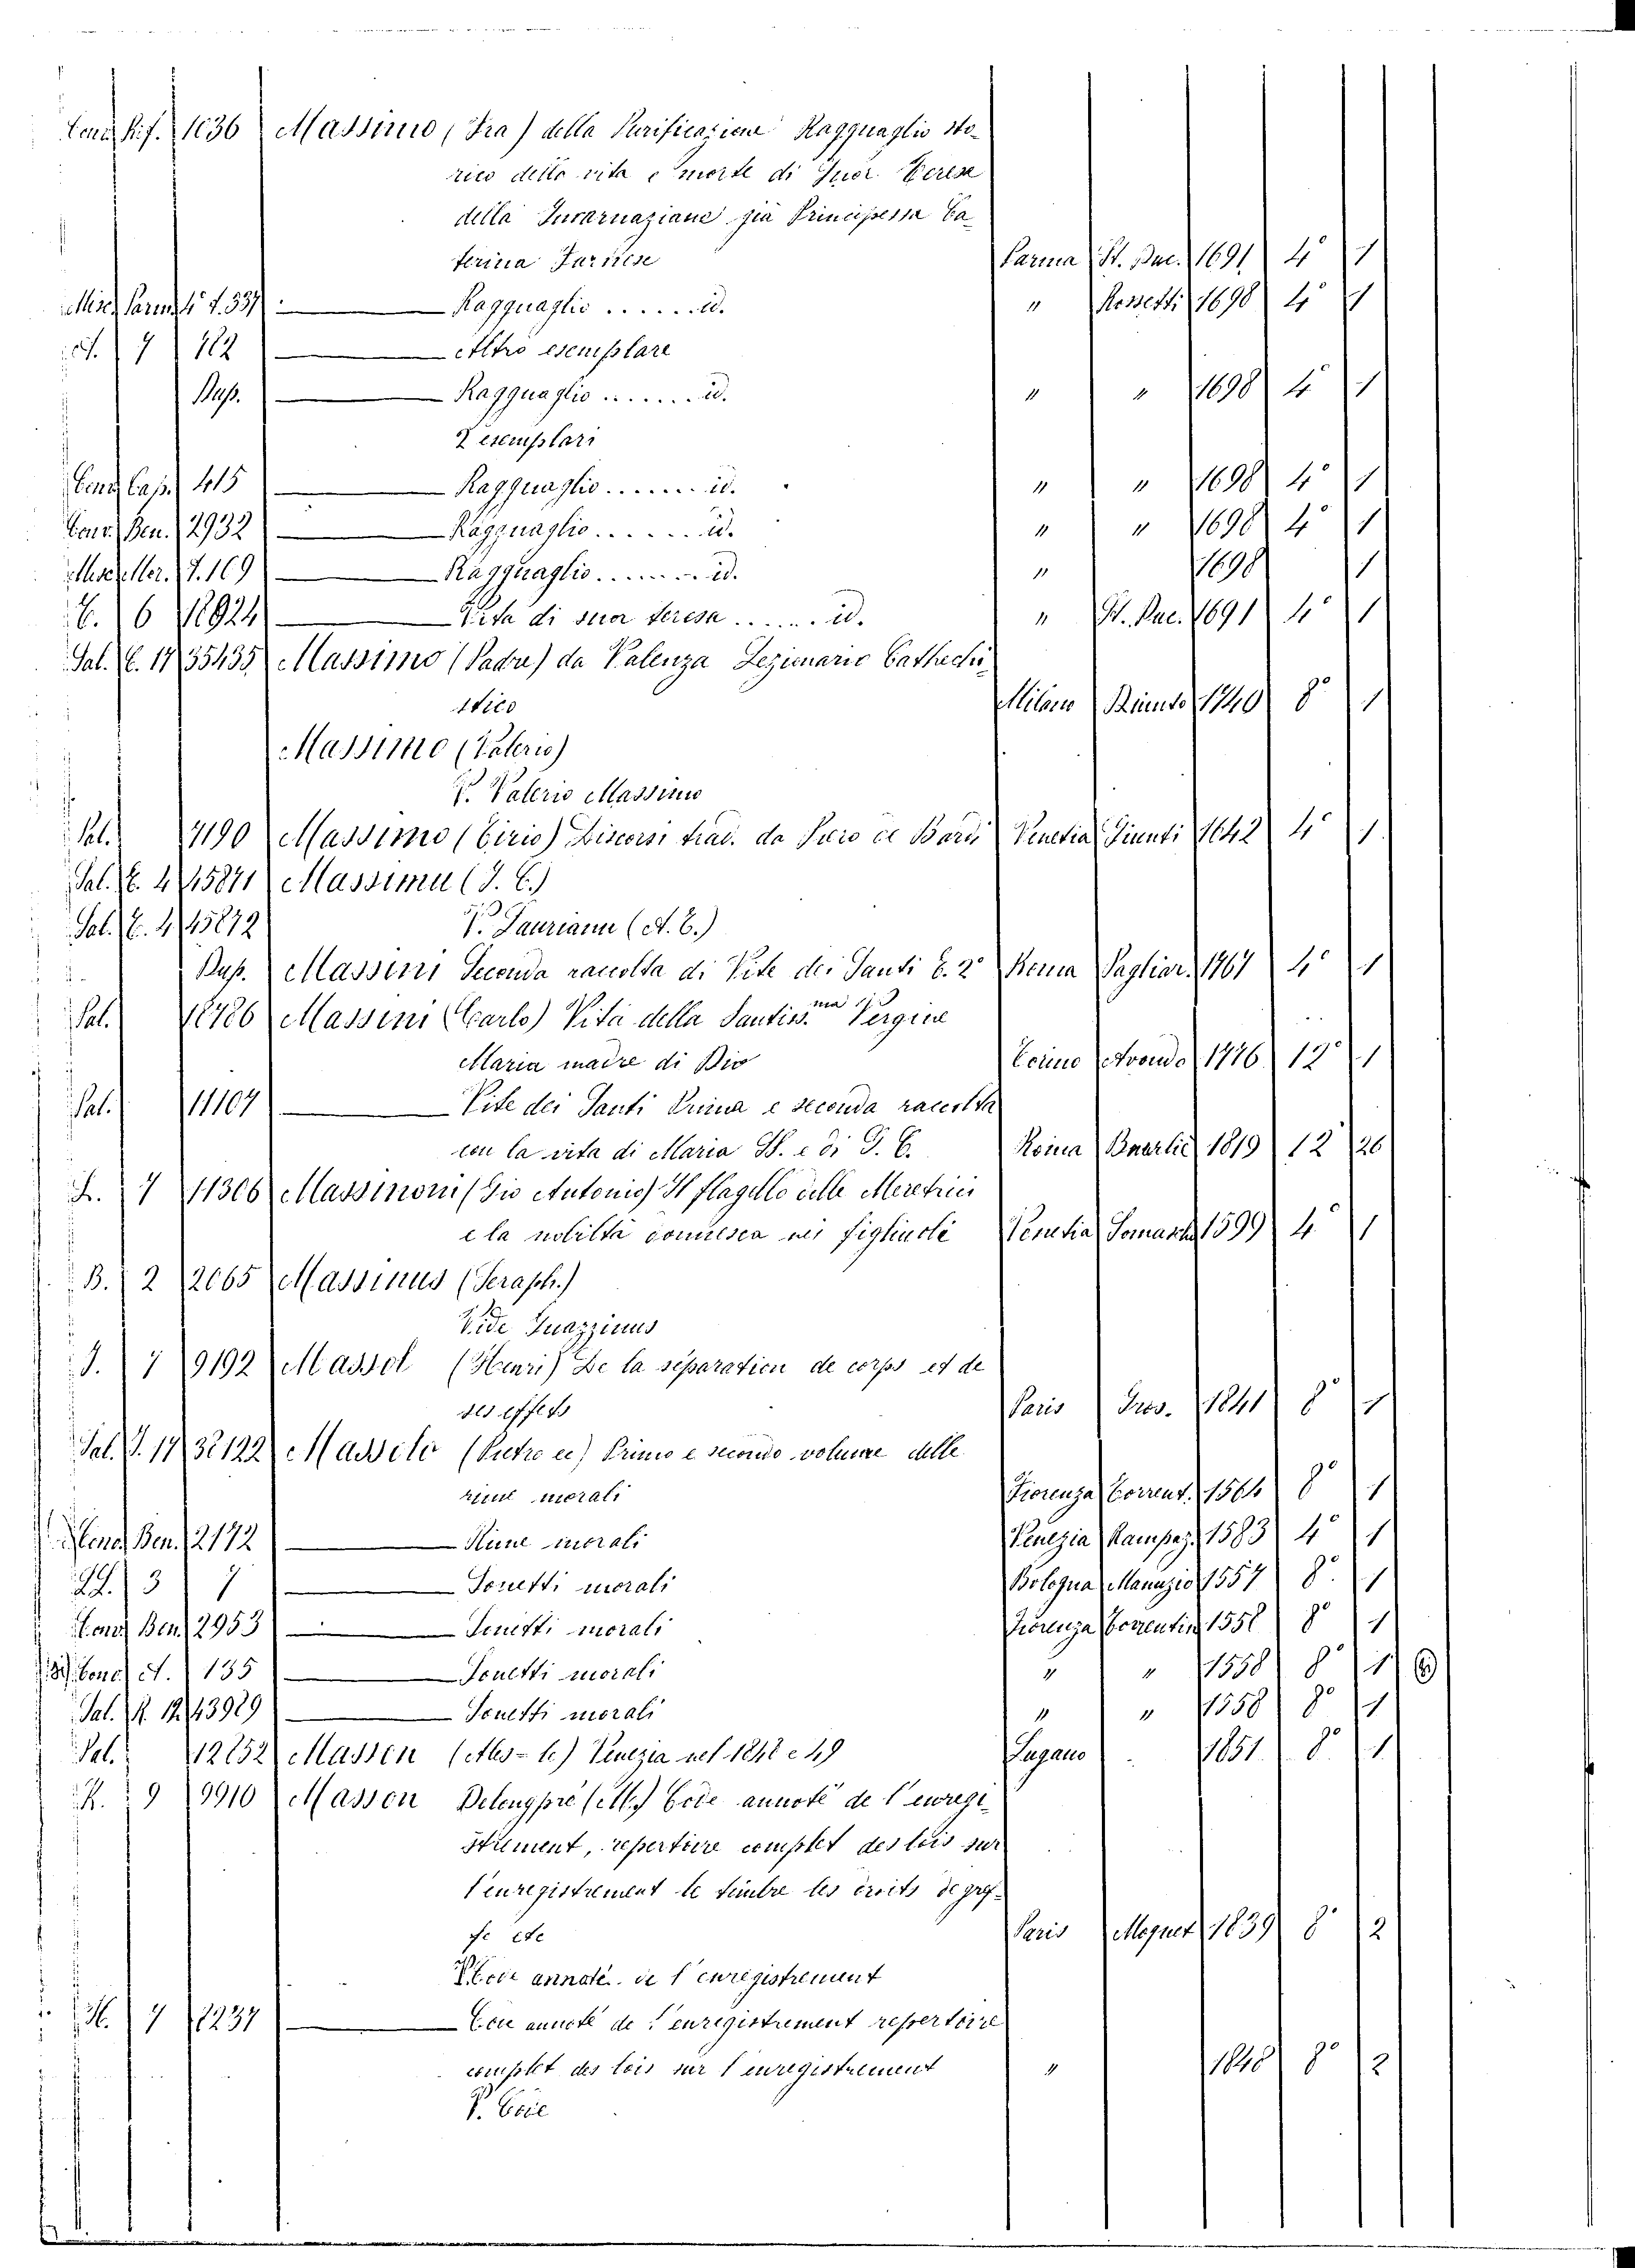 Conv. Rif. 1636 Massimo (Fra) della Purificazione Ragguaglio sto-
rico della vita e morte di Suor Teresa
della Incarnazione già Principessa Ca-
terina Farnese Parma St. Duc. 1691 4° 1
Misc. Parm. 4° T. 337 Ragguaglio ...... id. " Rossetti 1698 4° 1
A. 7 182 Altro esemplare
Dup. Ragguaglio ...... id. " " 1698 4° 1
2 esemplari
Conv. Cap. 415 Ragguaglio ...... id. " " 1698 4° 1
Conv. Ben. 2932 Ragguaglio ...... id. " " 1698 4° 1
Misc. Mer. T. 169 Ragguaglio ...... id. " 1698 1
C. 6 18924 Vita di suor teresa ...... id. " St. Duc. 1691 4° 1
Sal. C. 17 35435 Massimo (Padre) da Valenza Lezionario Cathechi-
stico Milano 1740 8° 1
Massimo (Valerio)
V. Valerio Massimo
Pal. 7190 Massimo (Tirio) Discorsi trad. da Piero de Bardi Venetia Giunti 1642 4° 1
Sal. E. 4 45871 Massimu (J. C.)
Sal. E. 4 45872 V. Tauriann (A. C.)
Dup. Massini Seconda raccolta di Vite dei Santi t. 2° Roma Pagliar. 1767 4° 1
Pal. 18786 Massini (Carlo) Vita della Santiss.ma Vergine
Maria madre di Dio Torino Avondo 1776 12° 1
Pal. 11107 Vite dei Santi Prima e seconda raccolta
con la vita di Maria SS. e di G. C. Roma 1819 12 26
L. 7 11306 Massinoni (Gio Antonio) Il flagello delle Meretrici
e la nobiltà donnesca nei figliuoli Venetia Somasch. 1599 4° 1
B. 2 2065 Massinus (Seraph.)
Vide Guazzinus
J. 7 9192 Massol (Henri) De la séparation de corps et de
ses effets Paris 1841 8° 1
Sal. J. 17 32122 Massolo (Pietro de) Primo e secondo volume delle
rime morali Fiorenza Torrent. 1564 8° 1
Conv. Ben. 2172 Rime morali Venezia Rampaz. 1583 4° 1
3 7 Sonetti morali Bologna Manuzio 1557 8° 1
Conv. Ben. 2953 Sonetti morali Fiorenza Torrentin. 1558 8° 1
Conv. A. 135 Sonetti morali " " 1558 8° 1
Sal. R. 12 43989 Sonetti morali " " 1558 8° 1
Pal. 12852 Masson (Ales- le) Venezia nel 1848 e 49 Lugano 1851 8° 1
K. 9 9910 Masson Delongpré (M.) Code annoté de l'enregi-
strement, repertoire complet des lois sur
l'enregistrement le timbre les droits de gref-
fe etc Paris 1839 8° 2
V. Code annoté de l'enregistrement
H. 7 8237 Code annoté de l'enregistrement repertoire
complet des lois sur l'enregistrement " 1848 8° 2
V. Code